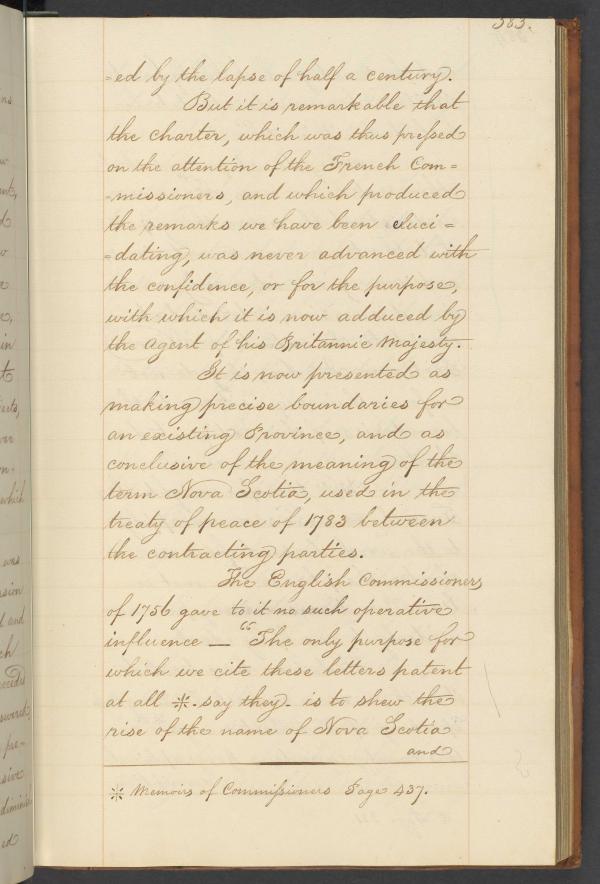 383.
=ed by the lapse of half a century.
But it is remarkable that
the charter, which was thus pressed
on the attention of the French Com=
=missioners, and which produced
the remarks we have been eluci=
=dating, was never advanced with
the confidence, or for the purpose,
with which it is now adduced by
the Agent of his Britannic Majesty.
It is now presented as
making precise boundaries for
an existing Province, and as
conclusive of the meaning of the
term Nova Scotia, used in the
treaty of peace of 1783 between
the contracting parties.
The English Commissioners
of 1756 gave to it no such operative
influence — "The only purpose for
which we cite these letters patent
at all *. say they. is to shew the
rise of the name of Nova Scotia
and
* Memoirs of Commissioners Page 437.